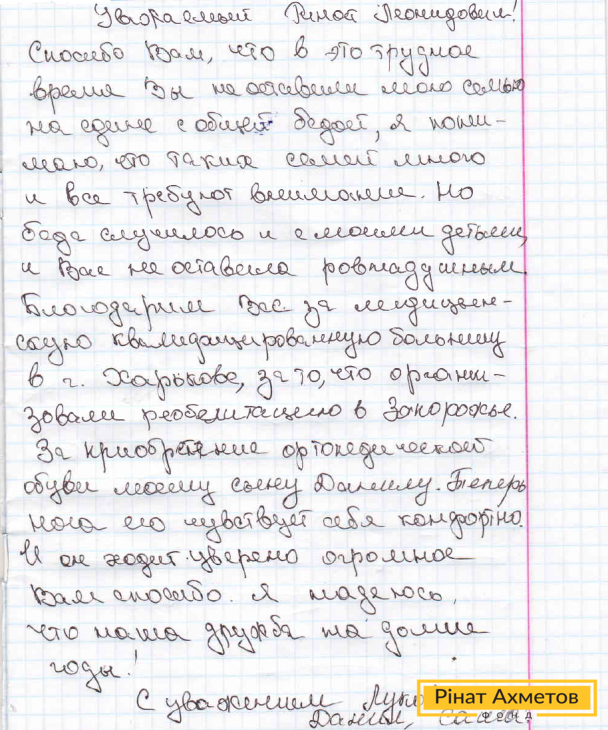 Уважаемый Ринат Леонидович!
Спасибо Вам, что в это трудное
время Вы не оставили мою семью
на едине с общей бедой, я пони-
маю, что таких семей много
и все требуют внимание. Но
беда случилось и с моими детьми,
и Вас не оставила ровнадушным.
Благодарим Вас за медицин-
скую квалифицированную больницу
в г. Харькове, за то, что органи-
зовали реобелитацию в Запорожье.
За приобретение ортопедической
обуви моему сыну Данилу. Теперь
нога его чувствует себя комфортно.
И он ходит уверено огромное
Вам спасибо. Я надеюсь,
что наша дружба на долгие
годы!
С уважением
Рінат Ахметов
Данил,